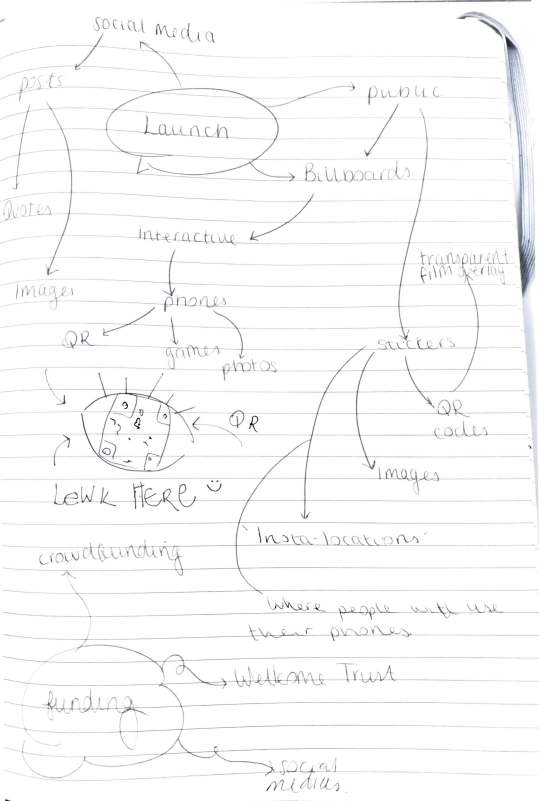 social media
posts
public
Launch
Billboards
Quotes
Interactive
transparent
film overlay
Images
phones
QR
games
photos
stickers
QR
codes
QR
Images
LEWK HERE
'Insta-locations'
crowdfunding
where people will use
their phones
Wellcome Trust
funding
social
medias